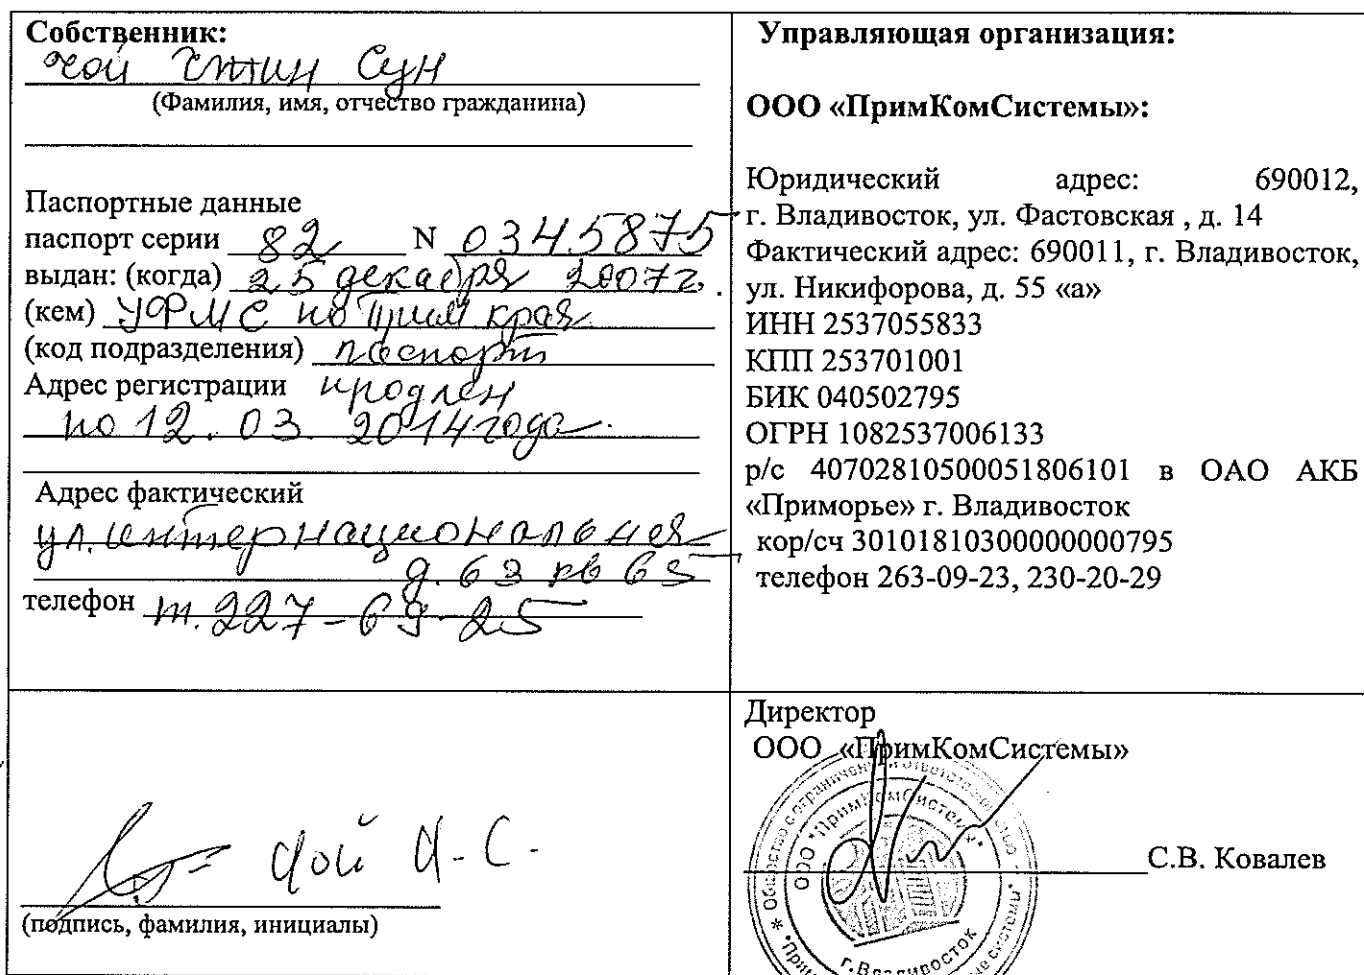 Собственник:
Цой Чтин Сун
(Фамилия, имя, отчество гражданина)
Паспортные данные
паспорт серии 82 N 0345875
выдан: (когда) 25 декабря 2007г.
(кем) УФМС по Прим края
(код подразделения) паспорт
Адрес регистрации продлен
по 12.03.2014 года.
Адрес фактический
ул. интернациональная
д. 63 кв 65
телефон т. 227-69-25
Цой Ч.С.
(подпись, фамилия, инициалы)
Управляющая организация:
ООО «ПримКомСистемы»:
Юридический адрес: 690012,
г. Владивосток, ул. Фастовская , д. 14
Фактический адрес: 690011, г. Владивосток,
ул. Никифорова, д. 55 «а»
ИНН 2537055833
КПП 253701001
БИК 040502795
ОГРН 1082537006133
р/с 40702810500051806101 в ОАО АКБ
«Приморье» г. Владивосток
кор/сч 30101810300000000795
телефон 263-09-23, 230-20-29
Директор
ООО «ПримКомСистемы»
С.В. Ковалев
ООО "ПримКомСистемы"
г.Владивосток